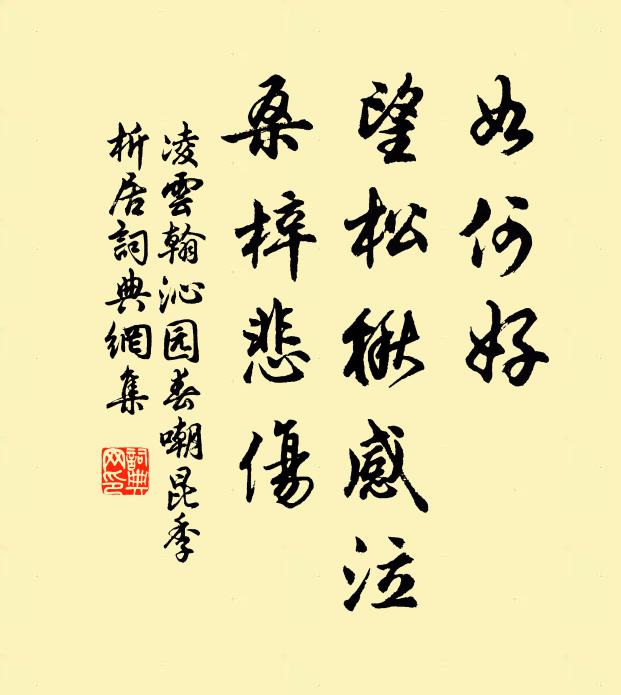 如何好
望松楸感泣
桑梓悲傷
凌雲翰沁园春嘲昆季
析居詞典網集
詞典
网印